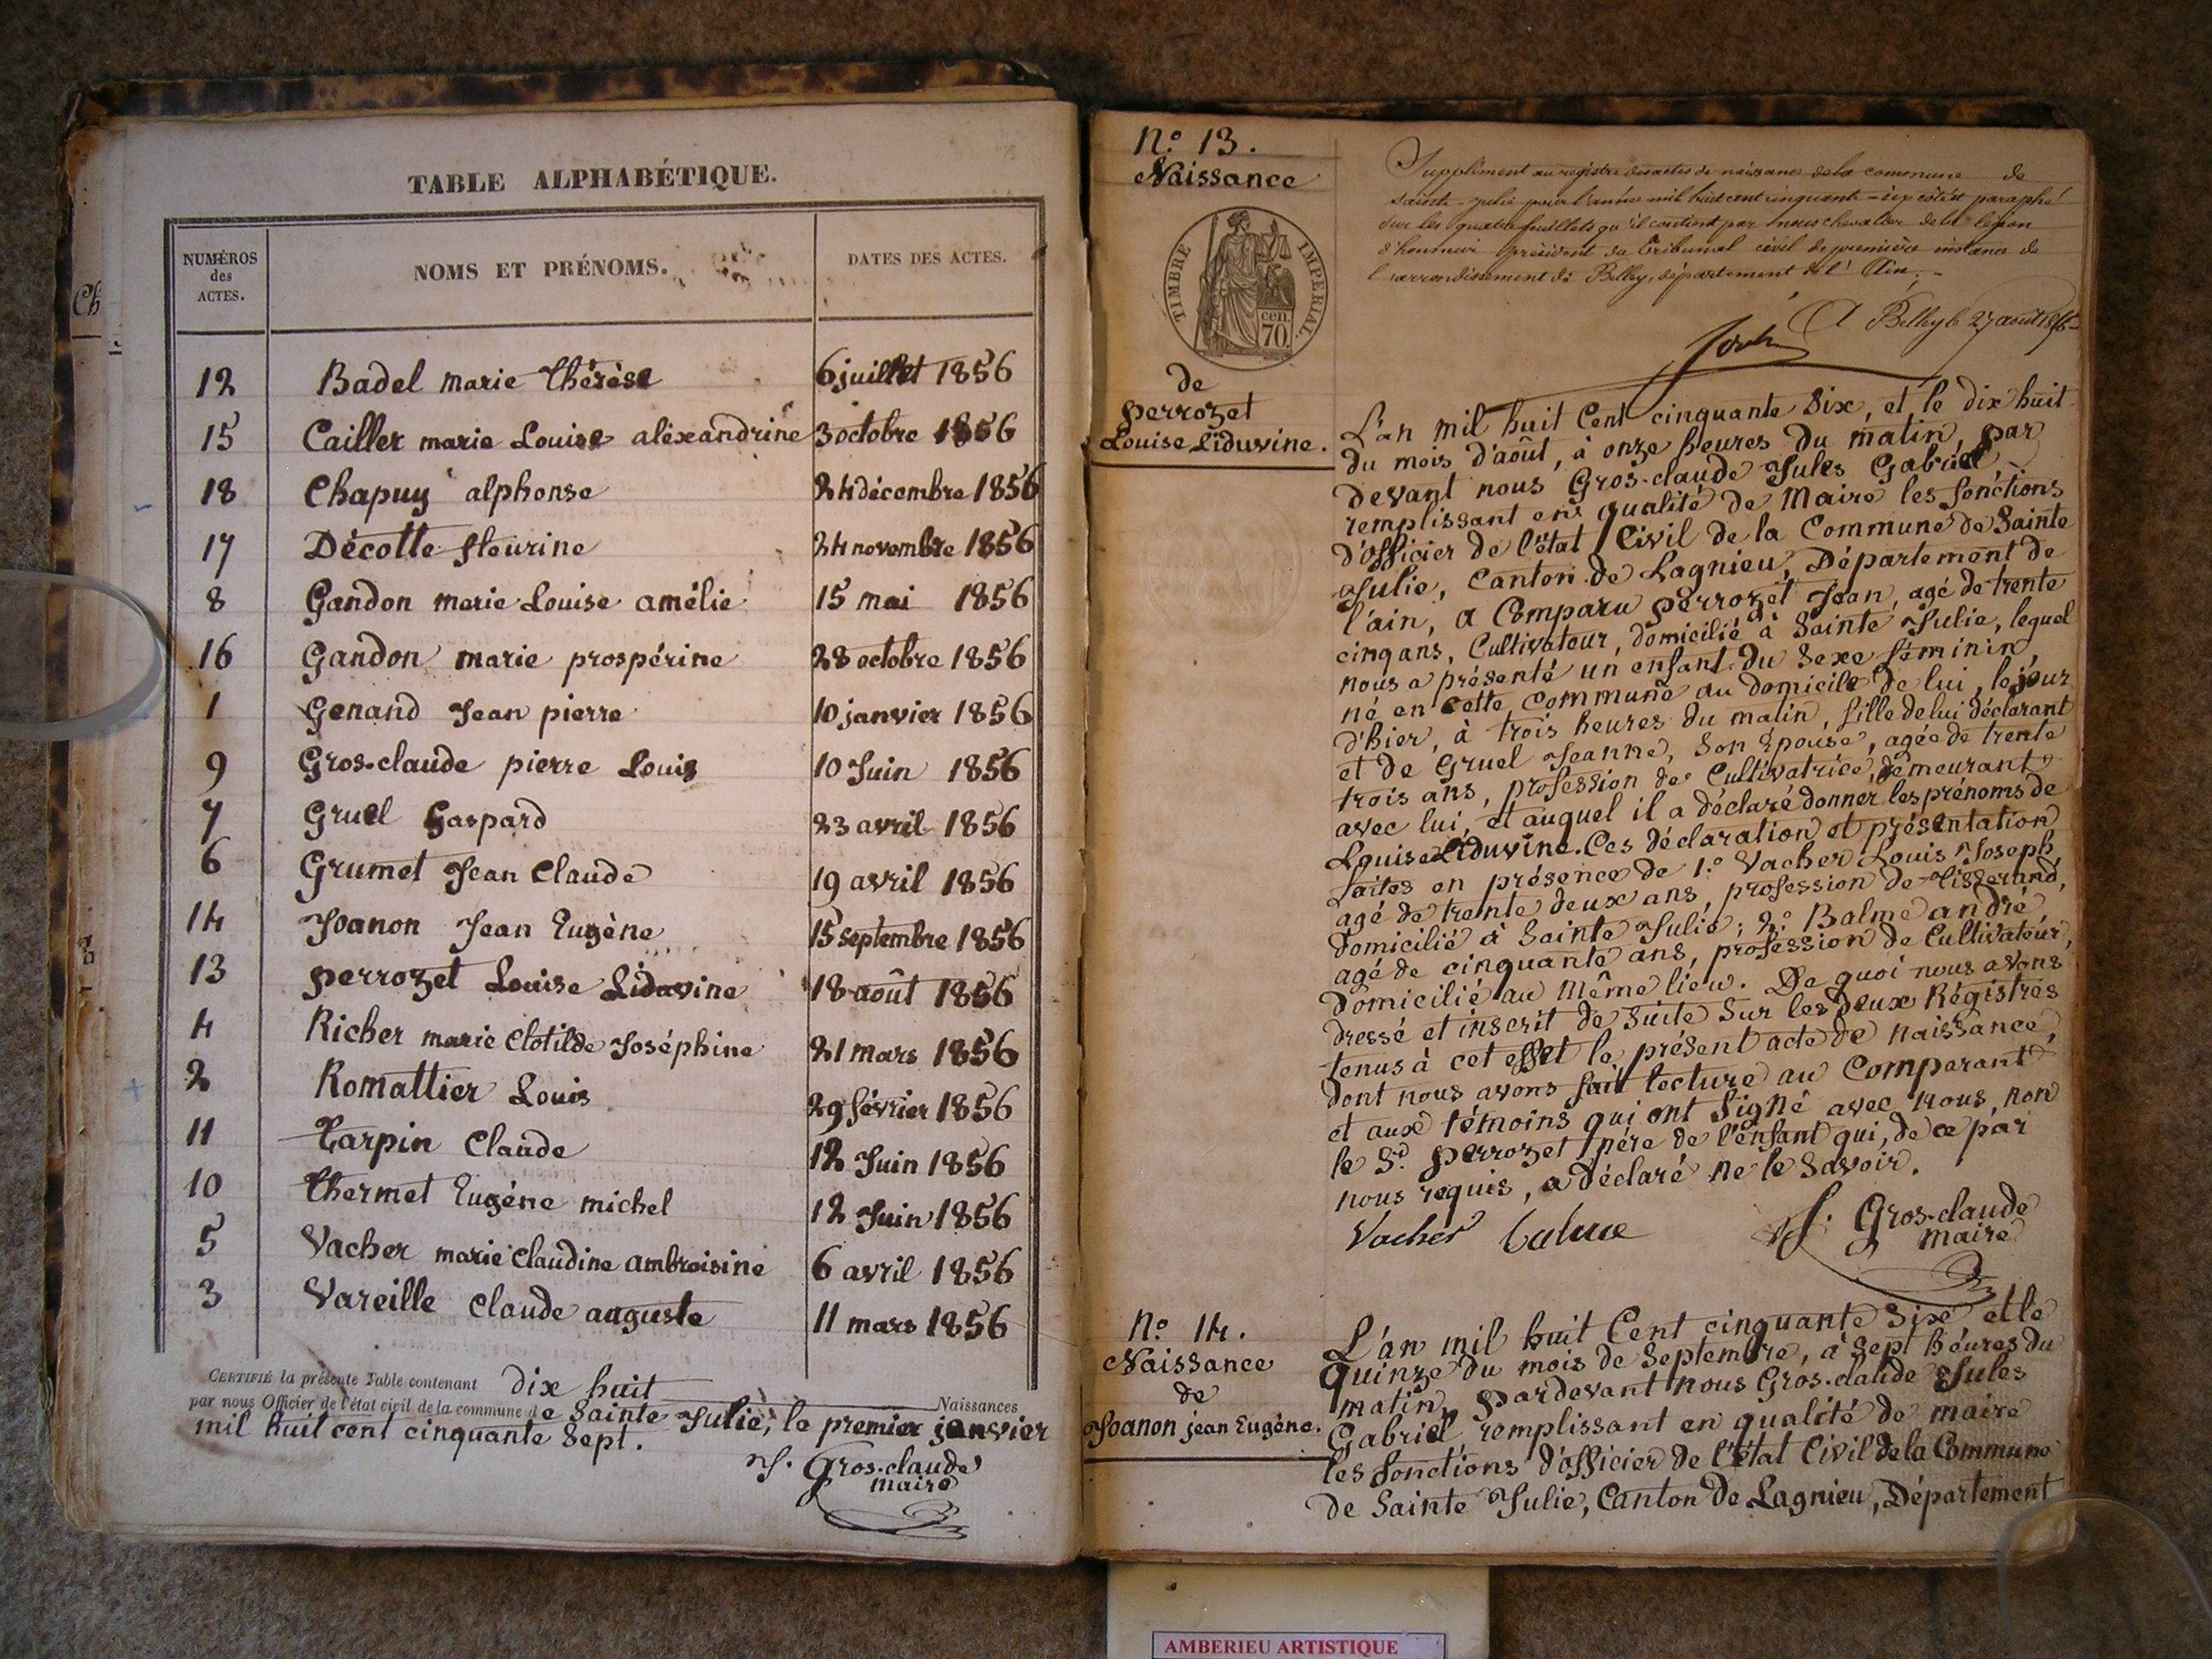 TABLE ALPHABÉTIQUE.
NUMÉROS des ACTES.
NOMS ET PRÉNOMS.
DATES DES ACTES.
12 Badel marie thérèse 6 juillet 1856
15 Cailler marie Louise aléxandrine 3 octobre 1856
18 Chapuy alphonse 24 décembre 1856
17 Décotte fleurine 24 novembre 1856
8 Gandon marie Louise amélie 15 mai 1856
16 Gandon marie prospérine 28 octobre 1856
1 Genand Jean pierre 10 janvier 1856
9 Gros-claude pierre Louis 10 Juin 1856
7 Gruel Gaspard 23 avril 1856
6 Grumet Jean Claude 19 avril 1856
14 Joanon Jean Eugène 15 septembre 1856
13 perrozet Louise Liduvine 18 août 1856
4 Richer marie Clotilde Joséphine 21 mars 1856
2 Romattier Louis 29 février 1856
11 Tarpin Claude 12 Juin 1856
10 thermet Eugéne michel 12 Juin 1856
5 Vacher marie Claudine ambroisine 6 avril 1856
3 Vareille Claude auguste 11 mars 1856
CERTIFIÉ la présente Table contenant dix huit Naissances
par nous Officier de l'état civil de la commune de Sainte Julie, le premier janvier
mil huit cent cinquante Sept.
Gros-claude
maire
Ch
N.o 13.
Naissance
TIMBRE IMPÉRIAL.
cen. 70.
de
perrozet
Louise Liduvine.
Supplément au registre des actes de naissance de la commune de
Sainte-Julie pour l'année mil huit cent cinquante-six côté et paraphé
sur les quatre feuillets qu'il contient par nous chevalier de la légion
d'honneur président du tribunal civil de première instance de
l'arrondissement de Belley, département de l'Ain.
A Belley le 27 août 1856
L'an mil huit Cent cinquante Six, et le dix huit
du mois d'août, à onze heures du matin, par
devant nous Gros-claude Jules Gabriel,
remplissant en qualité de Maire les fonctions
d'officier de l'état Civil de la Commune de Sainte
Julie, Canton de Lagnieu, Département de
l'ain, a Comparu perrozet Jean, agé de trente
cinq ans, Cultivateur, domicilié à Sainte Julie, lequel
nous a présenté un enfant du Sexe féminin,
né en cette Commune au domicile de lui, le jour
d'hier, à trois heures du matin, fille de lui déclarant
et de Gruel Jeanne, Son épouse, agée de trente
trois ans, profession de Cultivatrice, demeurant
avec lui, et auquel il a déclaré donner les prénoms de
Louise Liduvine. Ces déclaration et présentation
faites en présence de 1.o Vacher Louis Joseph,
agé de trente deux ans, profession de Tisserand,
domicilié à Sainte Julie; 2.o Balme andré,
agé de cinquante ans, profession de Cultivateur,
domicilié au même lieu. De quoi nous avons
dressé et inscrit de Suite Sur les deux Régistres
tenus à cet effet le présent acte de naissance,
dont nous avons fait lecture au Comparant
et aux témoins qui ont Signé avec nous, non
le S.d perrozet père de l'enfant qui, de ce par
nous requis, a déclaré ne le Savoir.
Vacher
Gros-claude
maire
N.o 14.
Naissance
de
Joanon jean Eugène.
L'an mil huit Cent cinquante Six et le
quinze du mois de Septembre, à Sept héures du
matin, pardevant nous Gros-claude Jules
Gabriel remplissant en qualité de maire
les fonctions d'officier de l'état Civil de la Commune
de Sainte Julie, Canton de Lagnieu, Département
AMBERIEU ARTISTIQUE